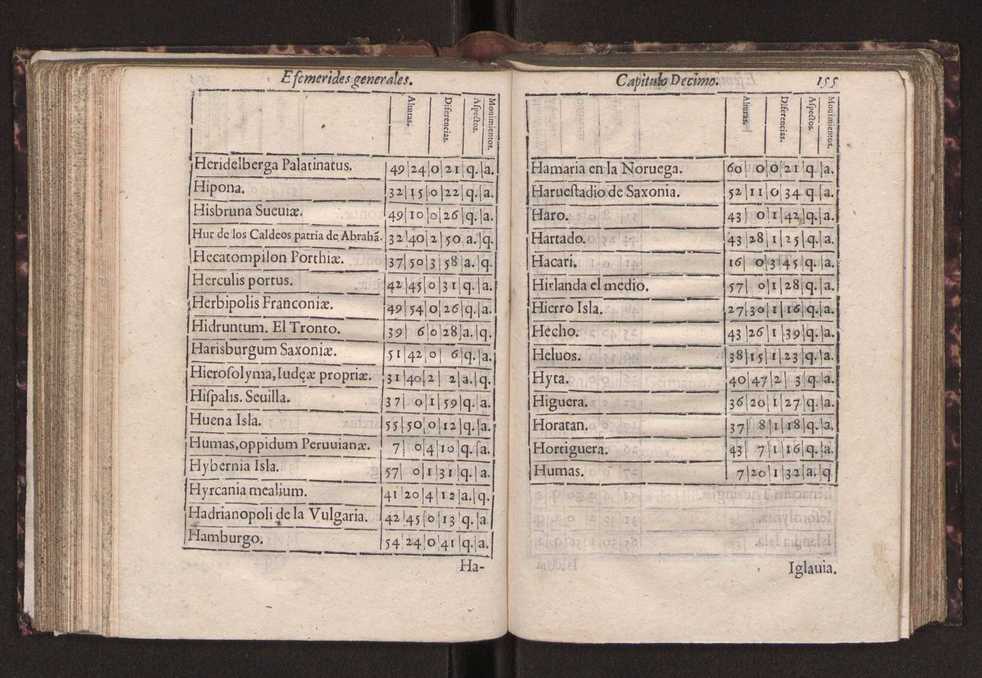 Efemerides generales.
Alturas. Diferencias. Aspectos. Mouimientos.
Heridelberga Palatinatus. 49 24 0 21 q. a.
Hipona. 32 15 0 22 q. a.
Hisbruna Sueuiæ. 49 10 0 26 q. a.
Hur de los Caldeos patria de Abrahã. 32 40 2 50 a. q.
Hecatompilon Porthiæ. 37 50 3 58 a. q.
Herculis portus. 42 45 0 31 q. a.
Herbipolis Franconiæ. 49 54 0 26 q. a.
Hidruntum. El Tronto. 39 6 0 28 a. q.
Harisburgum Saxoniæ. 51 42 0 6 q. a.
Hierosolyma, Iudęæ propriæ. 31 40 2 2 a. q.
Hispalis. Seuilla. 37 0 1 59 q. a.
Huena Isla. 55 50 0 12 q. a.
Humas, oppidum Peruuianæ. 7 0 4 10 q. a.
Hybernia Isla. 57 0 1 31 q. a.
Hyrcania mealium. 41 20 4 12 a. q.
Hadrianopoli de la Vulgaria. 42 45 0 13 q. a
Hamburgo. 54 24 0 41 q. a.
Ha-
Capitulo Decimo. 155
Alturas. Diferencias. Aspectos. Mouimientos.
Hamaria en la Noruega. 60 0 0 21 q. a.
Haruestadio de Saxonia. 52 11 0 34 q. a.
Haro. 43 0 1 42 q. a.
Hartado. 43 28 1 25 q. a.
Hacari. 16 0 3 45 q. a.
Hirlanda el medio. 57 0 1 28 q. a.
Hierro Isla. 27 30 1 16 q. a.
Hecho. 43 26 1 39 q. a.
Heluos. 38 15 1 23 q. a.
Hyta. 40 47 2 3 q. a.
Higuera. 36 20 1 27 q. a.
Horatan. 37 8 1 18 q. a.
Hortiguera. 43 7 1 16 q. a.
Humas. 7 20 1 32 a. q
Iglauia.